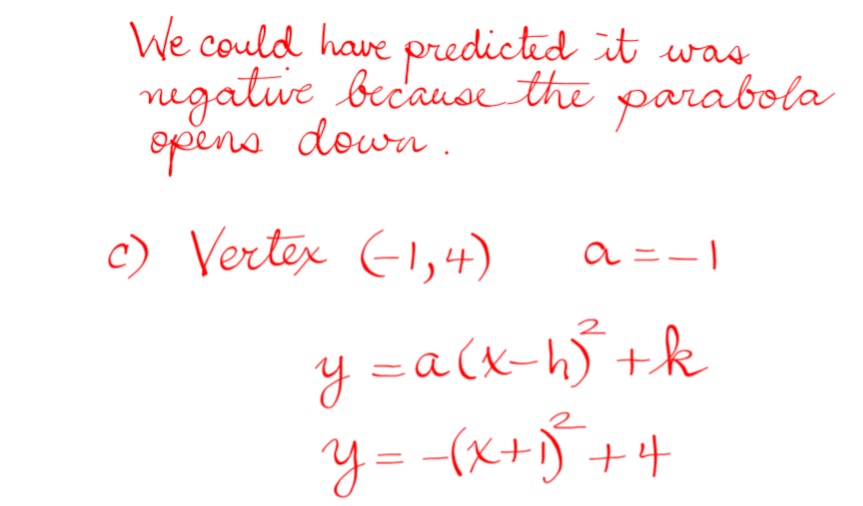 We could have predicted it was
negative because the parabola
opens down.
c) Vertex (-1, 4) a = -1
y = a(x-h)² + k
y = -(x+1)² + 4